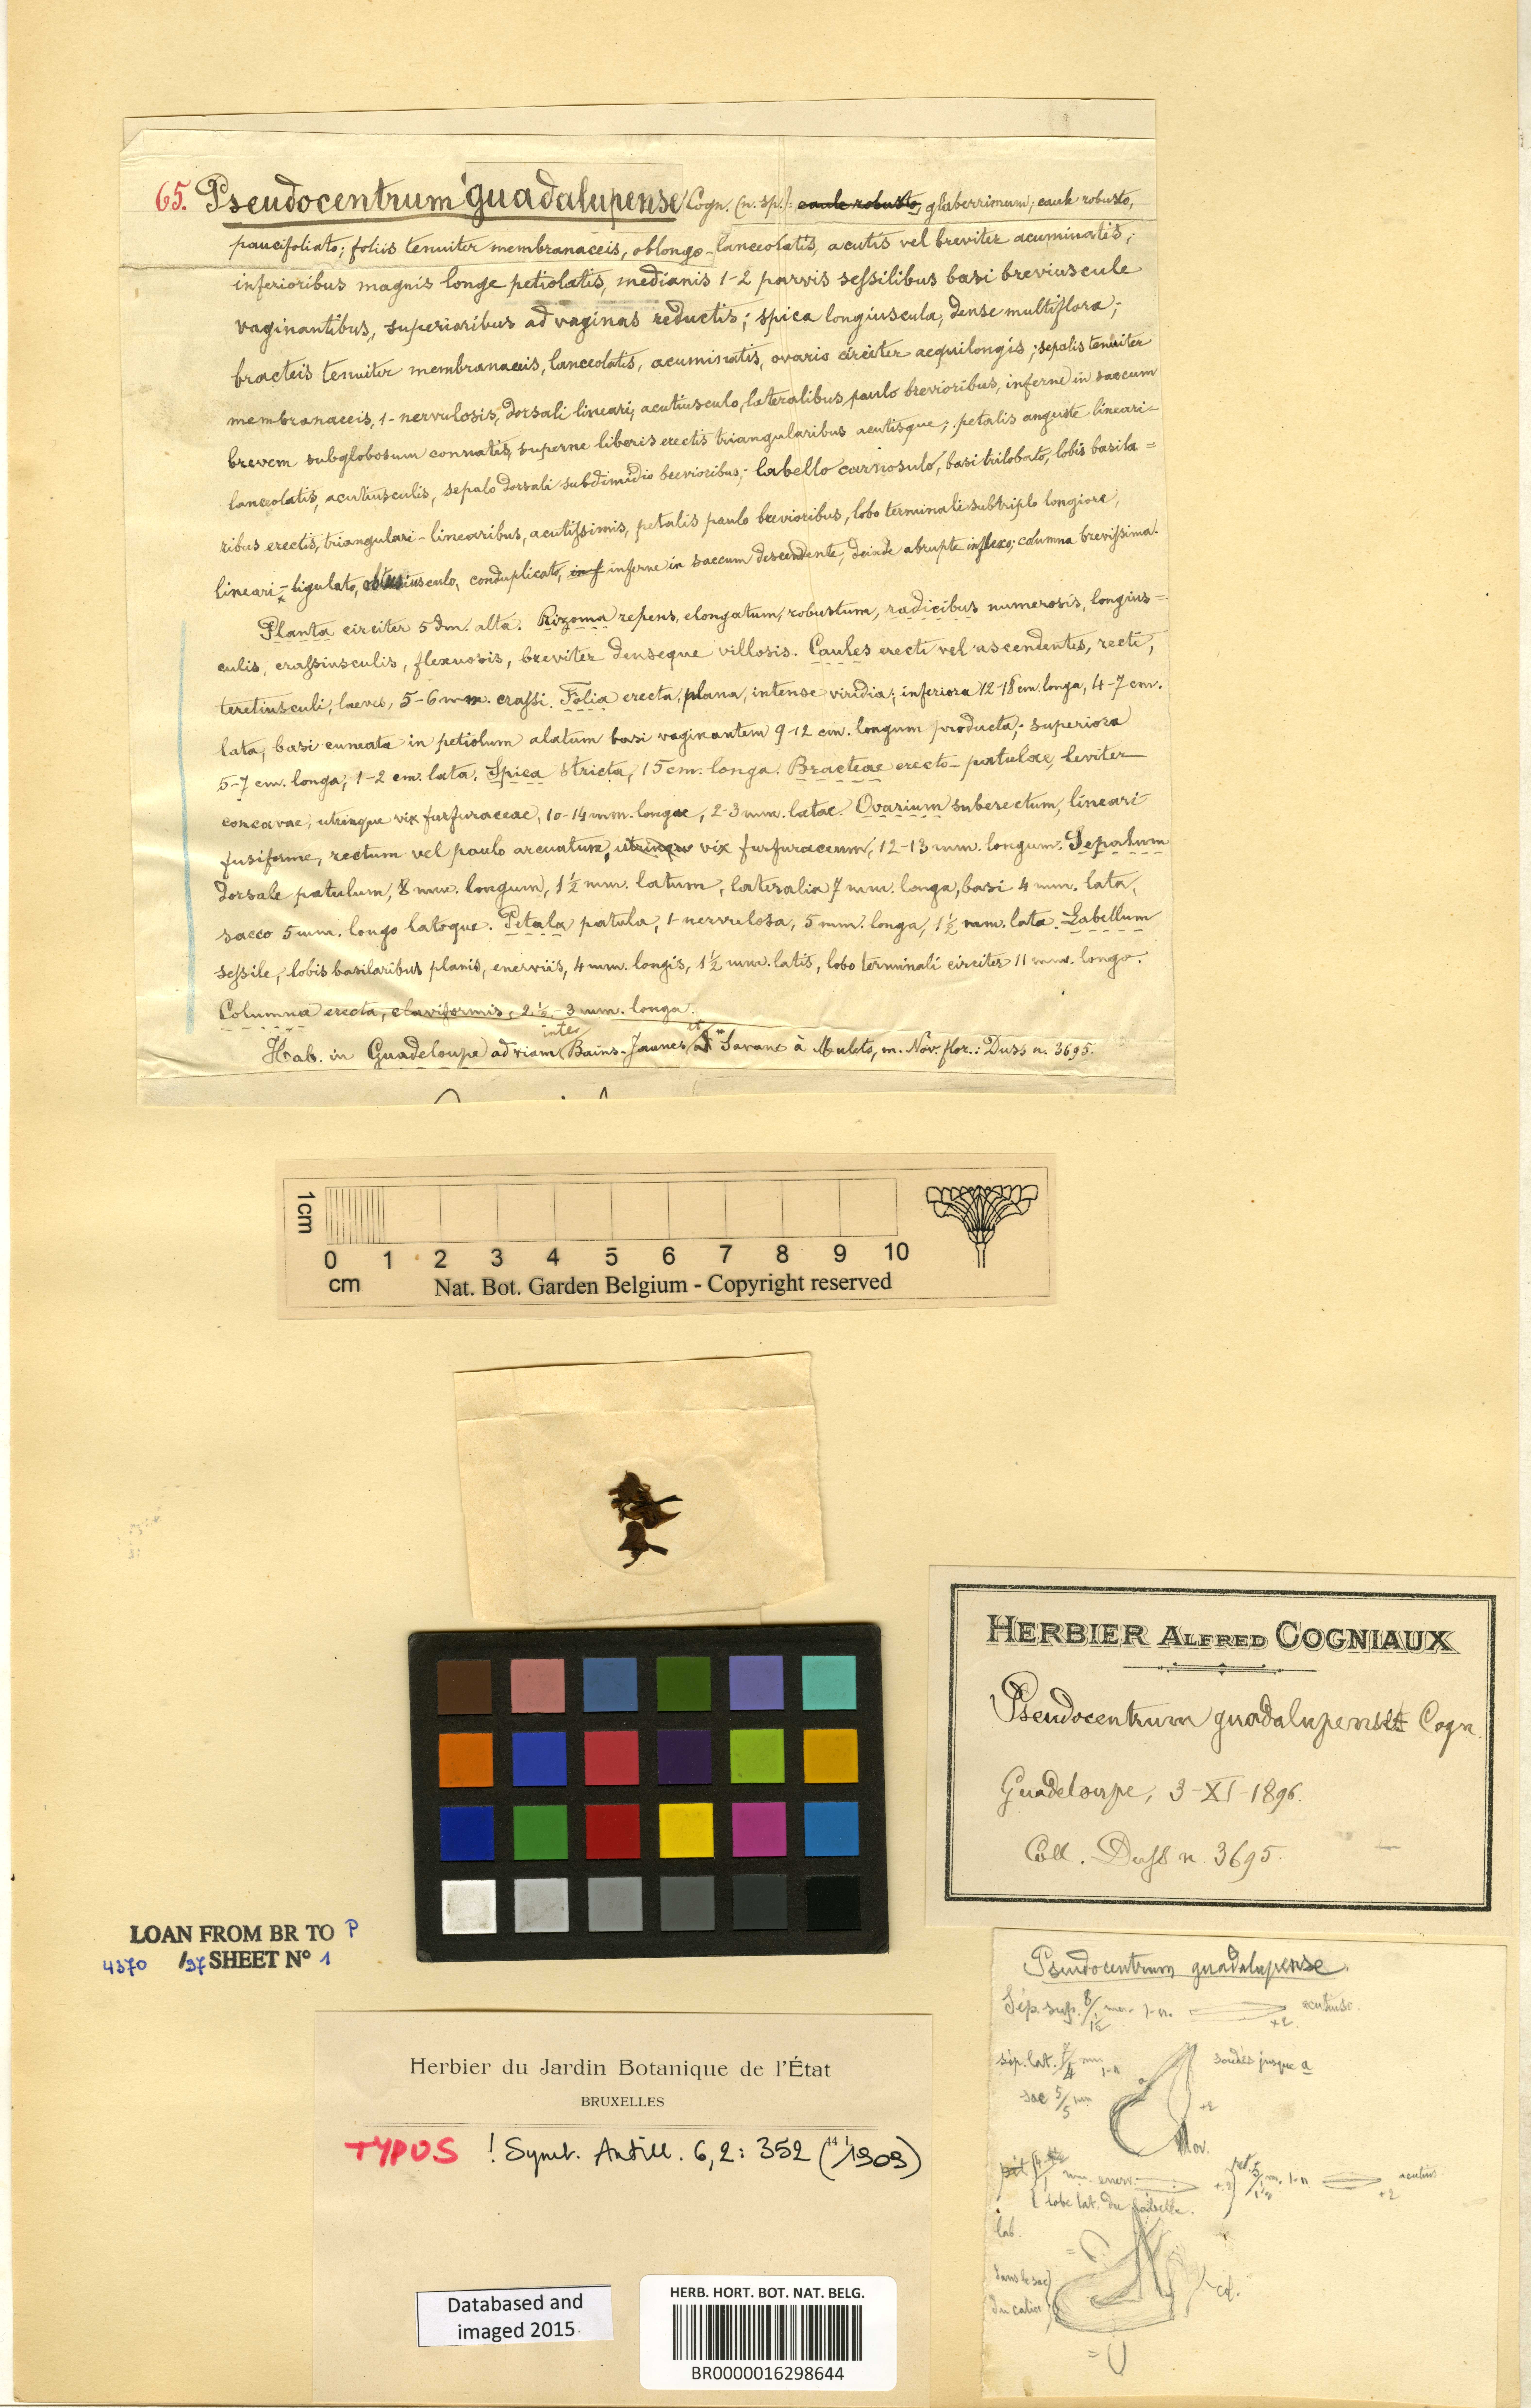 65. Pseudocentrum guadalupense Cogn. (n. sp.): caule robusto, glaberrimum; caule robusto,
paucifoliato; foliis tenuiter membranaceis, oblongo-lanceolatis, acutis vel breviter acuminatis;
inferioribus magnis longe petiolatis, medianis 1-2 parvis sessilibus basi breviuscule
vaginantibus, superioribus ad vaginas reductis; spica longiuscula, dense multiflora;
bracteis tenuiter membranaceis, lanceolatis, acuminatis, ovario circiter aequilongis; sepalis tenuiter
membranaceis, 1-nervulosis, dorsali lineari, acutiusculo, lateralibus paulo brevioribus, inferne in saccum
brevem subglobosum connatis, superne liberis erectis triangularibus acutisque; petalis anguste lineari-
lanceolatis, acutiusculis, sepalo dorsali subdimidio brevioribus; labello carnosulo, basi trilobato, lobis basila=
ribus erectis, triangulari-linearibus, acutissimis, petalis paulo brevioribus, lobo terminali subtriplo longiore,
lineari-ligulato, obtusiusculo, conduplicato, inf inferne in saccum descendente, deinde abrupte inflexo; columna brevissima.
Planta circiter 5 dm. alta. Rizoma repens, elongatum, robustum, radicibus numerosis, longius=
culis, crassiusculis, flexuosis, breviter denseque villosis. Caules erecti vel ascendentes, recti,
teretiusculi, laeves, 5-6 mm. crassi. Folia erecta, plana, intense viridia; inferiora 12-18 cm. longa, 4-7 cm.
lata, basi cuneata in petiolum alatum basi vaginantem 9-12 cm. longum producta; superiora
5-7 cm. longa, 1-2 cm. lata. Spica stricta, 15 cm. longa. Bracteae erecto-patulae, leviter
concavae, utrinque vix furfuraceae, 10-14 mm. longae, 2-3 mm. latae. Ovarium suberectum, lineari
fusiforme, rectum vel paulo arcuatum, utrinque vix furfuraceum, 12-13 mm. longum. Sepalum
dorsale patulum, 8 mm. longum, 1½ mm. latum, lateralia 7 mm. longa, basi 4 mm. lata,
sacco 5 mm. longo latoque. Petala patula, 1-nervulosa, 5 mm. longa, 1½ mm. lata. Labellum
sessile, lobis basilaribus planis, enerviis, 4 mm. longis, 1½ mm. latis, lobo terminali circiter 11 mm. longo.
Columna erecta, claviformis, 2½-3 mm. longa.
Hab. in Guadeloupe ad viam inter Bains-Jaunes et Savane à Mulets, m. Nov. flor.: Duss n. 3695.
1cm
0 1 2 3 4 5 6 7 8 9 10
cm Nat. Bot. Garden Belgium - Copyright reserved
HERBIER ALFRED COGNIAUX
Pseudocentrum guadalupense Cogn.
Guadeloupe, 3-XI-1896.
Coll. Duss n. 3695.
LOAN FROM BR TO P
4370 /37 SHEET N° 1
Pseudocentrum guadalupense.
Sép. sup. 8/1½ mm. 1-n. acutiusc.
+2
sép. lat. 7/4 mm 1-n a soudés jusque a
sac 5/5 mm +2
ov.
mm. enerv. +2 pet. 5/1½ m. 1-n acutius.
+2
1 lobe lat. du labelle.
lab.
dans le sac
du calice
Herbier du Jardin Botanique de l'État
BRUXELLES
TYPUS ! Symb. Antill. 6, 2: 352 (1909)
Databased and
imaged 2015
HERB. HORT. BOT. NAT. BELG.
BR0000016298644